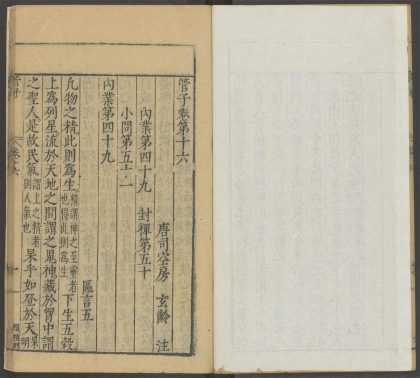 管子卷第十六
唐司空房 玄齡 注
內業第四十九 封禪第五十
小問第五十一
內業第四十九
區言五
凡物之精此則爲生精謂神之至靈者也得此則爲生下生五穀
上爲列星流於天地之間謂之鬼神藏於胷中謂
之聖人是故民氣謂上之精者則人氣也杲乎如登於天杲明
管子
卷十六